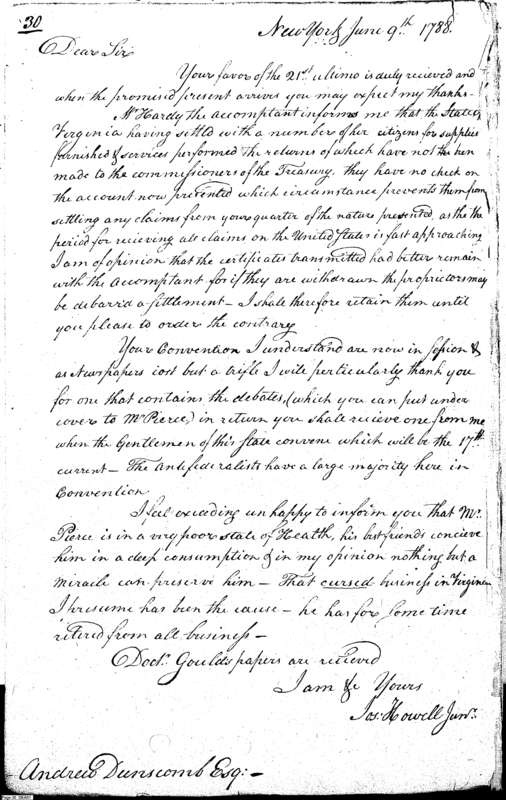 30
New York June 9th 1788.
Dear Sir
Your favor of the 21st ultimo is duly recieved and
when the promised present arrives you may expect my thanks—
Mr Hardy the accomptant informs me that the State of
Virginia having settled with a number of her citizens for supplies
furnished & services performed the returns of which have not the been
made to the commissioners of the Treasury. they have no check on
the account now presented which circumstance prevents them from
settling any claims from your quarter of the nature presented, as the the
period for recieving all claims on the United States is fast approaching
I am of opinion that the certificates transmitted had better remain
with the accomptant for if they are withdrawn the proprietors may
be debarr'd a settlement — I shall therefore retain them until
you please to order the contrary
Your Convention I understand are now in session &
as Newspapers cost but a trifle I will perticularly thank you
for one that contains the debates, (which you can put under
cover to Mr Pierce,) in return you shall recieve one from me
when the Gentlemen of this State convene which will be the 17th
current — The Antifederalists have a large majority here in
Convention
I feel exceeding unhappy to inform you that Mr
Pierce is in a very poor state of Health, his best friends concieve
him in a deep consumption & in my opinion nothing but a
miracle can preserve him — That cursed business in Virginia
I presume has been the cause — he has for some time
retired from all business —
Doctr Goulds papers are recieved
I am &c Yours
Jos: Howell Junr:
Andrew Dunscomb Esq: —